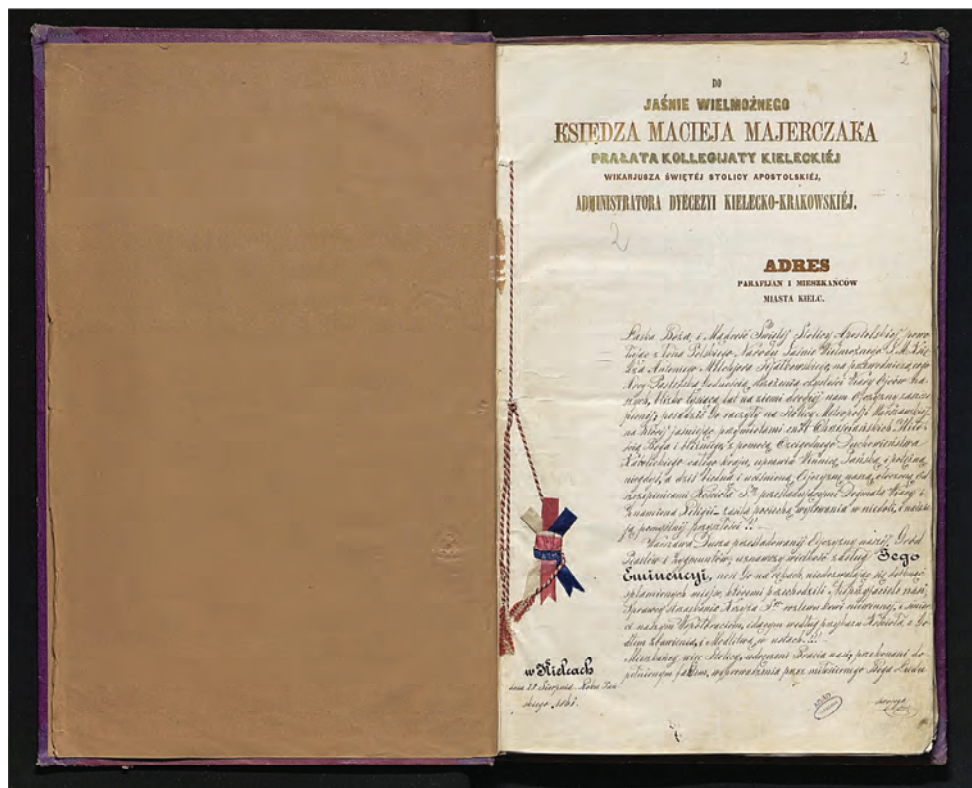 2
DO
JAŚNIE WIELMOŻNEGO
KSIĘDZA MACIEJA MAJERCZAKA
PRAŁATA KOLLEGIJATY KIELECKIÉJ
WIKARJUSZA ŚWIĘTÉJ STOLICY APOSTOLSKIÉJ,
ADMINISTRATORA DYECEZYI KIELECKO-KRAKOWSKIÉJ.
2
ADRES
PARAFIJAN I MIESZKAŃCÓW
MIASTA KIELC.
Łaska Boża, i Mądrość Świętéj Stolicy Apostolskiéj powo-
łując z łona Polskiego Narodu Jaśnie Wielmożnego J. M. Xię-
dza Antoniego Melchjora Fijałkowskiego, na przewodniczącego
Arcy-Pasterską Godnością, strażenia czystości Wiary Ojców na-
szych, blizko tysiąca lat na ziemi drogiéj nam Ojczyzny zaszcze-
pionéj; posadzić Go raczyły na Stolicy Metropolji Warszawskiéj
na któréj jaśniejąc przymiotami cnót Chrześciańskich Miło-
ścią Boga i bliźniego, z pomocą Czcigodnego Duchowieństwa
Katolickiego całego kraju, uprawia Winnicę Pańską, i potężną
niegdyś, a dziś biedną i uciśnioną Ojczyznę naszą, otoczoną
Kościoła Sgo prześladującymi Dogmata Wiary i
Znamiona Religii zasila pociechą wytrwania w niedoli, i nadzie-
ją pomyślnéj przyszłości!!
Warszawa Dusza prześladowanéj Ojczyzny naszéj, Gród
Piastów i Zygmuntów, uznawszy wielkość zasług Jego
Eminencyi, nosi Go na rękach niedozwalając się dotknąć
splamionych miejsc, któremi przechodzili Nieprzyjaciele nasi,
Sprawcy Krzyża Sgo rozlewu krwi niewinnéj, i śmier-
ci naszym Współbraciom, idącym według przepisu Kościoła, z Go-
dłem zbawienia, i Modlitwą w ustach!!!
Mieszkańcy więc Stolicy, Bracia nasi, przekonani do-
pełnionym faktem, wyprowadzenia przez miłosiernego Boga Ludu
w Kielcach
dnia Sierpnia Roku Pań
skiego 1861.